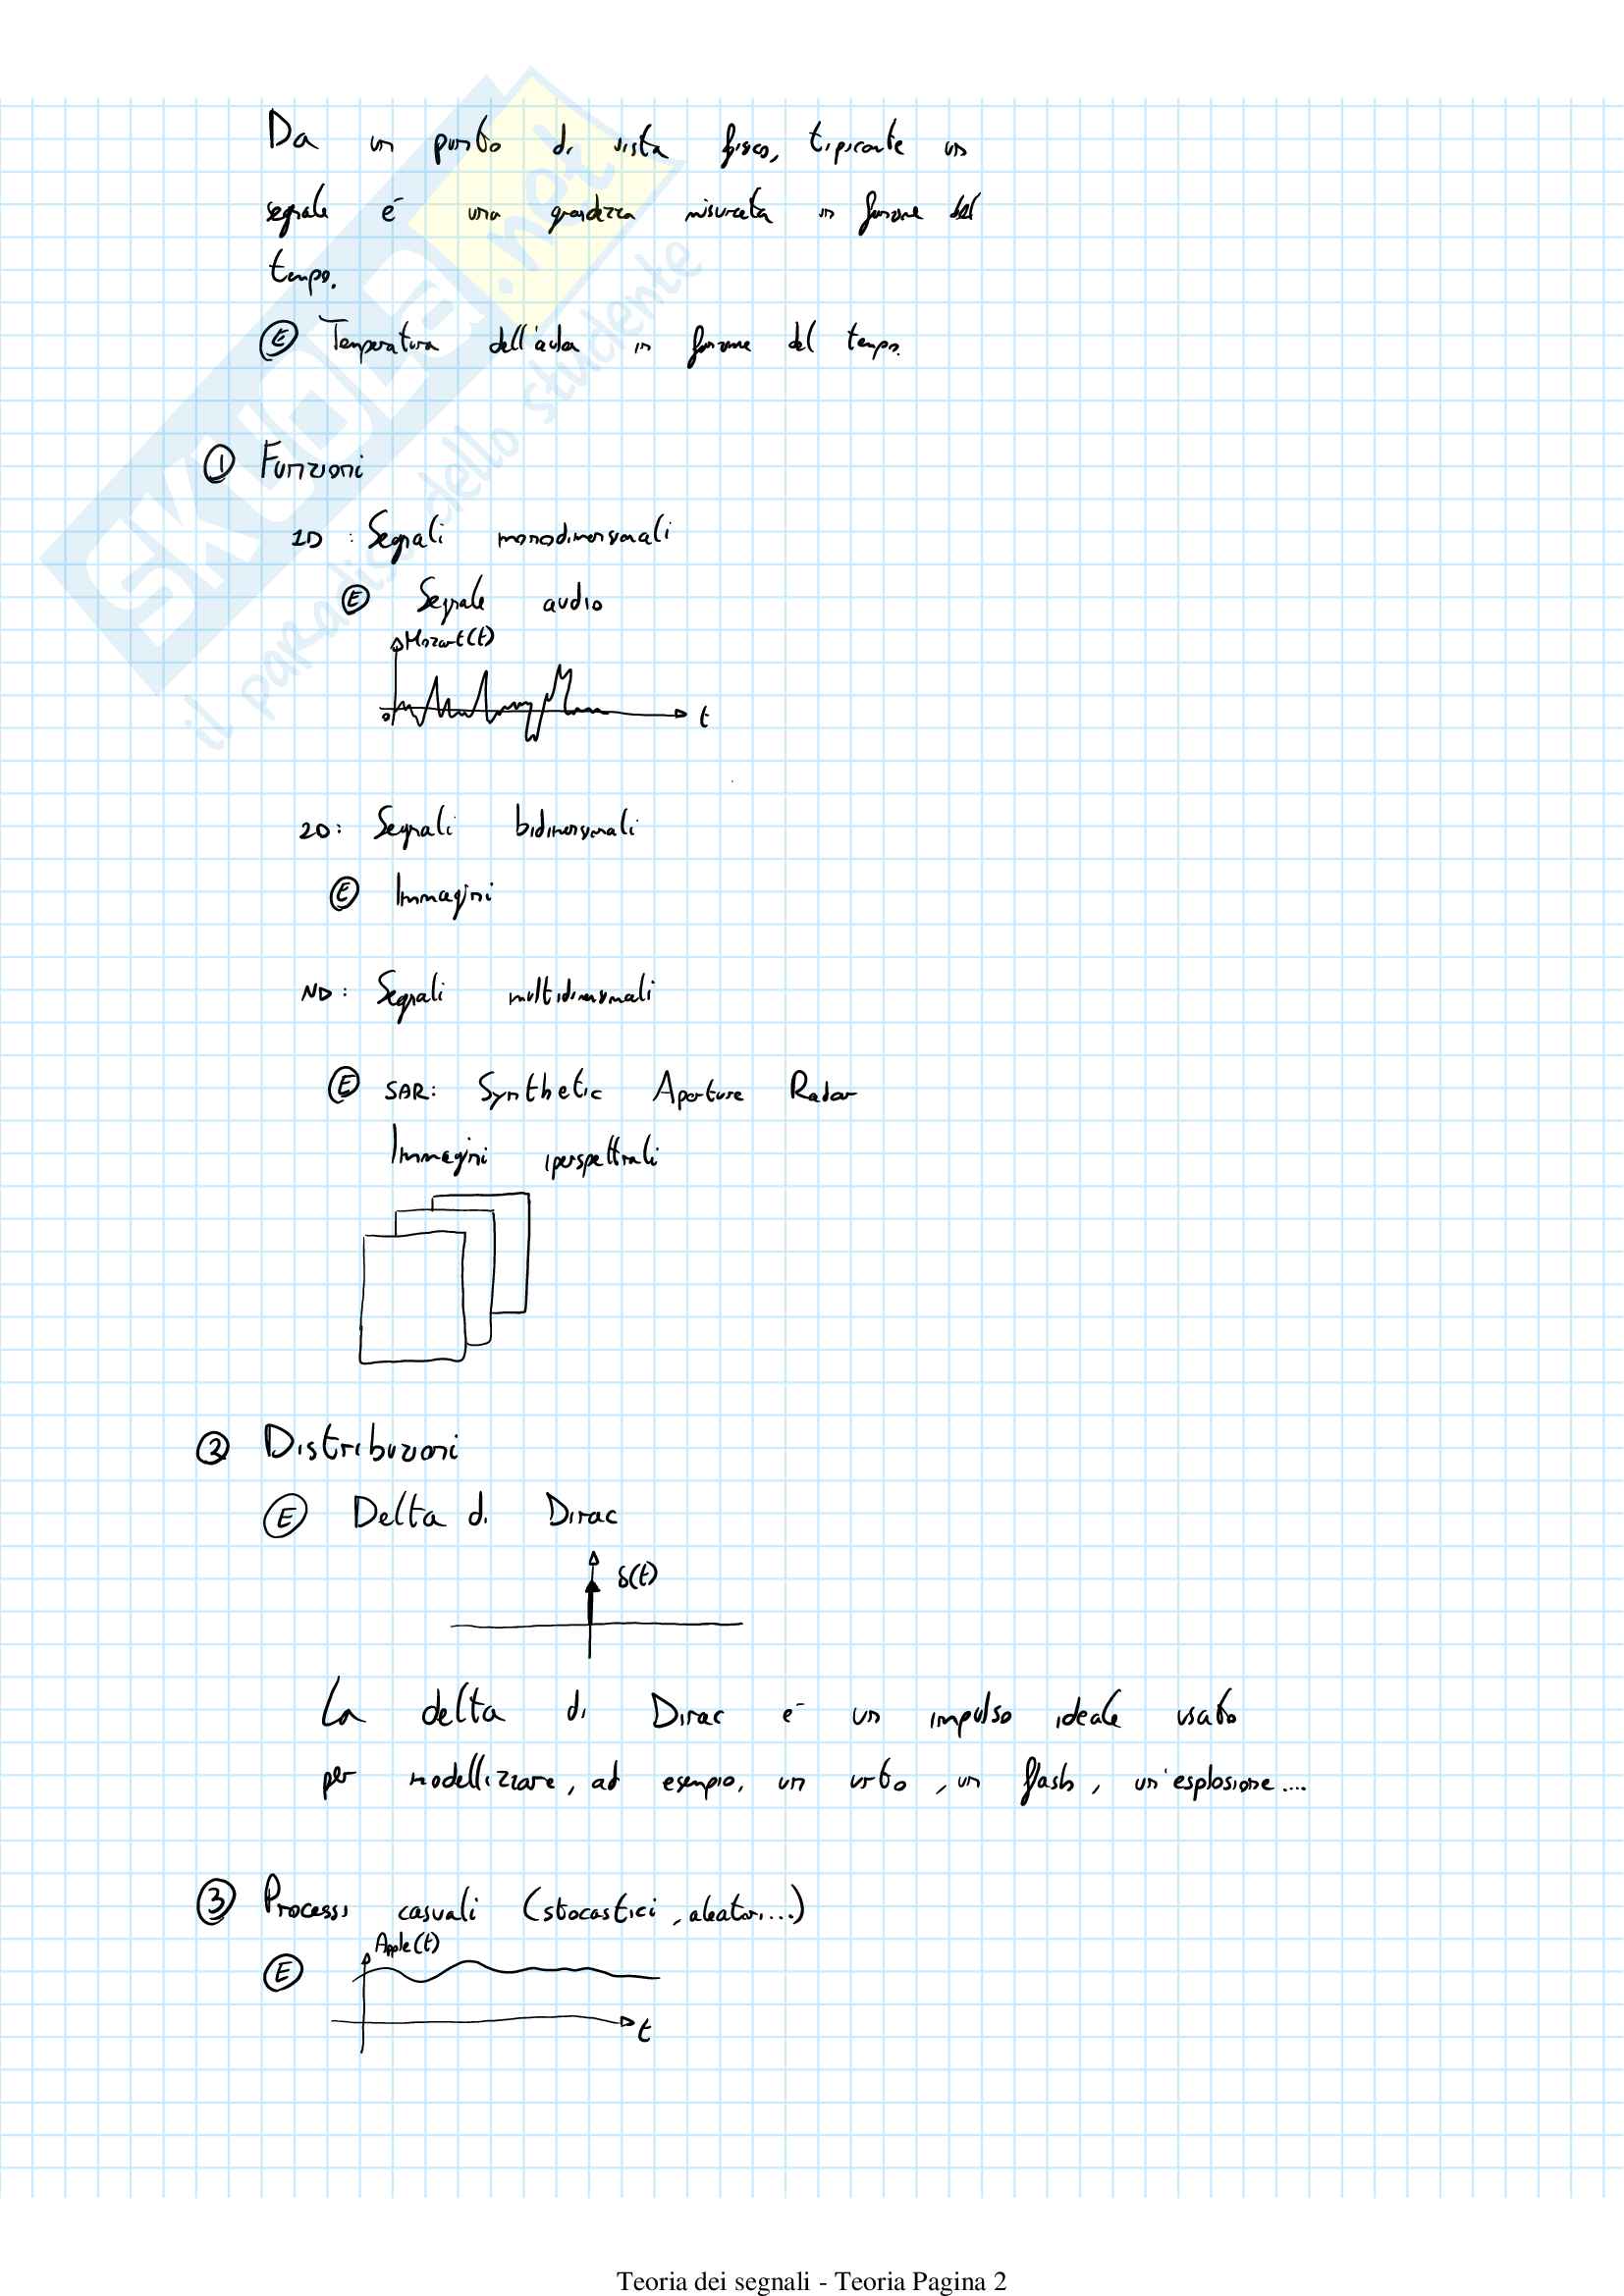 Da un punto di vista fisico, tipicamente un
segnale è una grandezza misurata in funzione del
tempo.
E Temperatura dell'aula in funzione del tempo.
1 Funzioni
1D : Segnali monodimensionali
E Segnale audio
Mozart(t)
0
t
2D: Segnali bidimensionali
E Immagini
ND: Segnali multidimensionali
E SAR: Synthetic Aperture Radar
Immagini iperspettrali
2 Distribuzioni
E Delta di Dirac
δ(t)
La delta di Dirac è un impulso ideale usato
per modellizzare, ad esempio, un urto, un flash, un'esplosione....
3 Processi casuali (stocastici, aleatori...)
Apple(t)
E
t
SKUOLA.net
il paradiso dello studente
Teoria dei segnali - Teoria Pagina 2